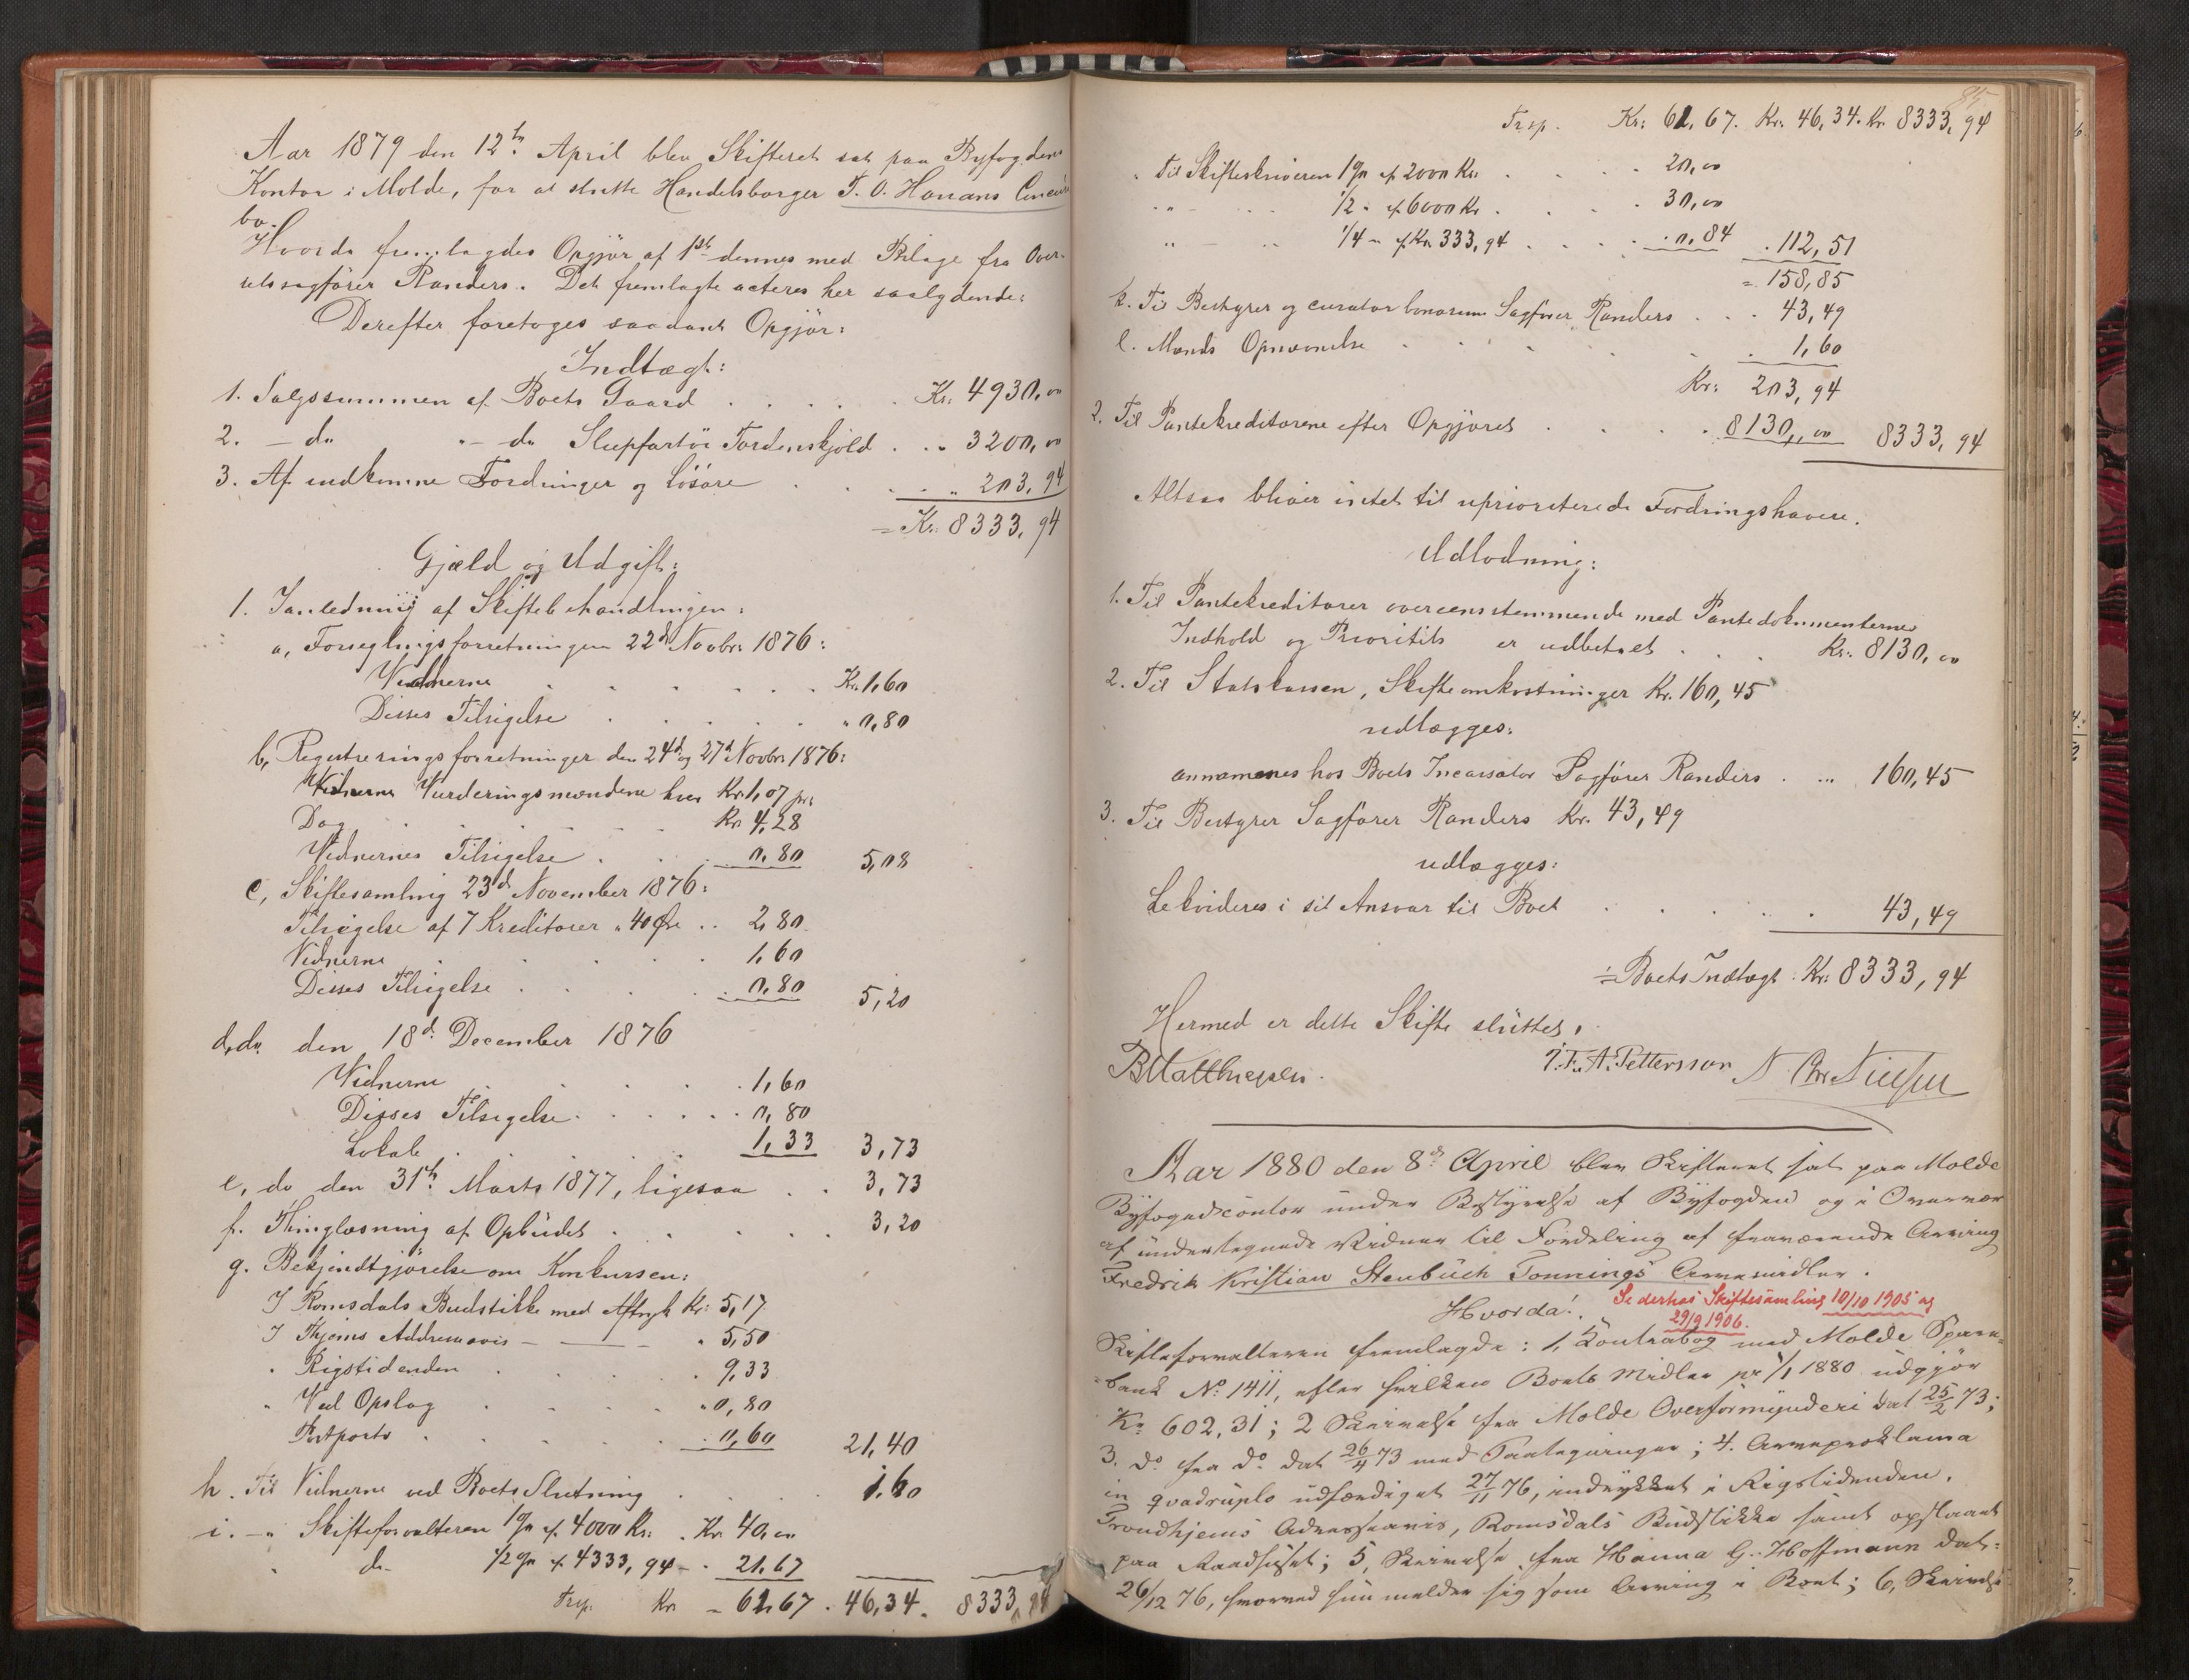 Aar 1879 den 12te April blev Skifteret sat paa Byfogdens
Kontor i Molde, for at slutte Handelsborger T. O. Hanans Concurs
bo.
Hvorda fremlagdes Opgjør af 1st dennes med Bilage fra Over-
retssagfører Randers. Det fremlagte acteres her saalydende:
Derefter foretoges saadant Opgjør:
Indtægt:
1. Salgssummen af Boets Gaard . . . . . Kr: 4930,00
2. – do – do Slupfartøi Tordenskjold . . „ 3200,00
3. Af indkomne Fordringer og Løsøre . . . „ 203,94
= Kr: 8333,94
Gjæld og Udgift:
1. I anledning af Skiftebehandlingen:
a, Forseglingsforretningen 22d Novbr: 1876:
Vidnerne . . . . . . Kr. 1,60
Disses Tilsigelse . . . . . „ 0,80
b, Registreringsforretninger den 24d og 27d Novbr 1876:
Vurderingsmændene hver Kr. 1,07 pr:
Dag . . . . . Kr. 4,28
Vidnernes Tilsigelse . . . 0,80 5,08
c, Skiftesamling 23d November 1876:
Tilsigelse af 7 Kreditorer „ 40 Øre . . 2,80
Vidnerne . . . . . . 1,60
Disses Tilsigelse . . . . 0,80 5,20
d, do den 18d December 1876
Vidnerne . . . . 1,60
Disses Tilsigelse . . . . . 0,80
Lokale . . . 1,33 3,73
e, do den 31te Marts 1877, ligesaa . . 3,73
f. Thinglæsning af Opbudet . . . . . 3,20
g. Bekjendtgjørelse om Konkursen:
I Romsdals Budstikke med Aftryk Kr: 5,17
I Thjems Addresseavis – — – „ 5,50
„ Rigstidenden . . . . . 9,33
„ Ved Opslag . . . . . „ 0,80
Postporto . . . . . . 0,60 21,40
h. Til Vidnerne ved Boets Slutning . . . . 1,60
i. – „ Skifteforvalteren 1% af 4000 Kr: . Kr. 40,00
„ do – 1/2% af 4333,94 – . 21,67
Trsp. Kr – 61,67 . 46,34 . 8333,94
85
Trsp. Kr: 61,67. Kr. 46,34. Kr 8333,94
„ Til Skifteskriveren 1% af 2000 Kr: . . . . 20,00
„ „ – „ „ 1/2 „ af 6000 Kr . . . . 30,00
„ „ – „ „ 1/4 – af Kr 333,94 . . . . . 0,84 . 112,51
= 158,85
k. Til Bestyrer og curator bonorum Sagfører Randers . . . 43,49
l. Mænds Opnævnelse . . . . . . 1,60
Kr: 203,94
2. Til Pantekreditorene efter Opgjøret . . . . 8130,00 8333,94
Altsaa bliver intet til uprioriterede Fordringshavere.
Udlodning:
1. Til Pantekreditorer overeensstemmende med Pantedokumenternes
Indhold og Prioritets er udbetalt . . . Kr: 8130,00
2. Til Statskassen, Skifteomkostninger Kr. 160,45
udlægges:
annammes hos Boets Incassator Sagfører Randers . . . 160,45
3. Til Bestyrer Sagfører Randers Kr. 43,49
udlægges:
Lekvideres i sit Ansvar til Boet . . . . . 43,49
= Boets Indtægt: Kr: 8333,94
Hermed er dette Skifte sluttet.
BMatthiesen. F. A. Pettersson N. Chr Nielsen
Aar 1880 den 8de April blev Skifteret sat paa Molde
Byfogedcontor under Bestyrelse af Byfogden og i Overvær
af undertegnede Vidner til Fordeling af fraværende Arving
Fredrik Kristian Stenbüch Tonnings Arvemidler.
Hvorda: Se derhos Skiftesamling 10/10 1905 og
29/9 1906.
Skifteforvalteren fremlagde: 1, Contrabog med Molde Spare-
bank No 1411, efter hvilken Boets Midler pr 1/1 1880 udgjør
Kr 602,31; 2 Skrivelse fra Molde Overformynderi dat 25/2 73;
3. do fra do dat 26/4 73 med Paategninger; 4. Arveproklama
in qvadruplo udfærdiget 27/11 76, indrykket i Rigstidenden,
Trondhjems Adresseavis, Romsdals Budstikke samt opslaaet
paa Raadhuset; 5, Skrivelse fra Hanna G. Hoffmann dat:
26/12 76, hvorved hun melder sig som Arving i Boet; 6, Skrivelse